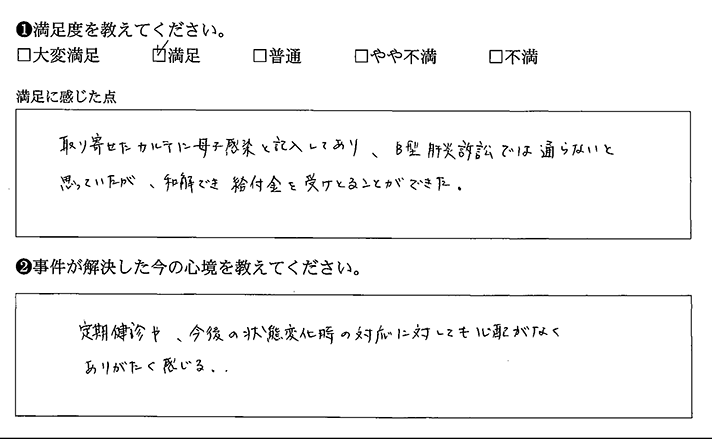 ❶満足度を教えてください。
□大変満足 ☑満足 □普通 □やや不満 □不満
満足に感じた点
取り寄せたカルテに母子感染と記入してあり、B型肝炎訴訟では通らないと
思っていたが、和解でき給付金を受けとることができた。
❷事件が解決した今の心境を教えてください。
定期健診や、今後の状態変化時の対応に対しても心配がなく
ありがたく感じる..